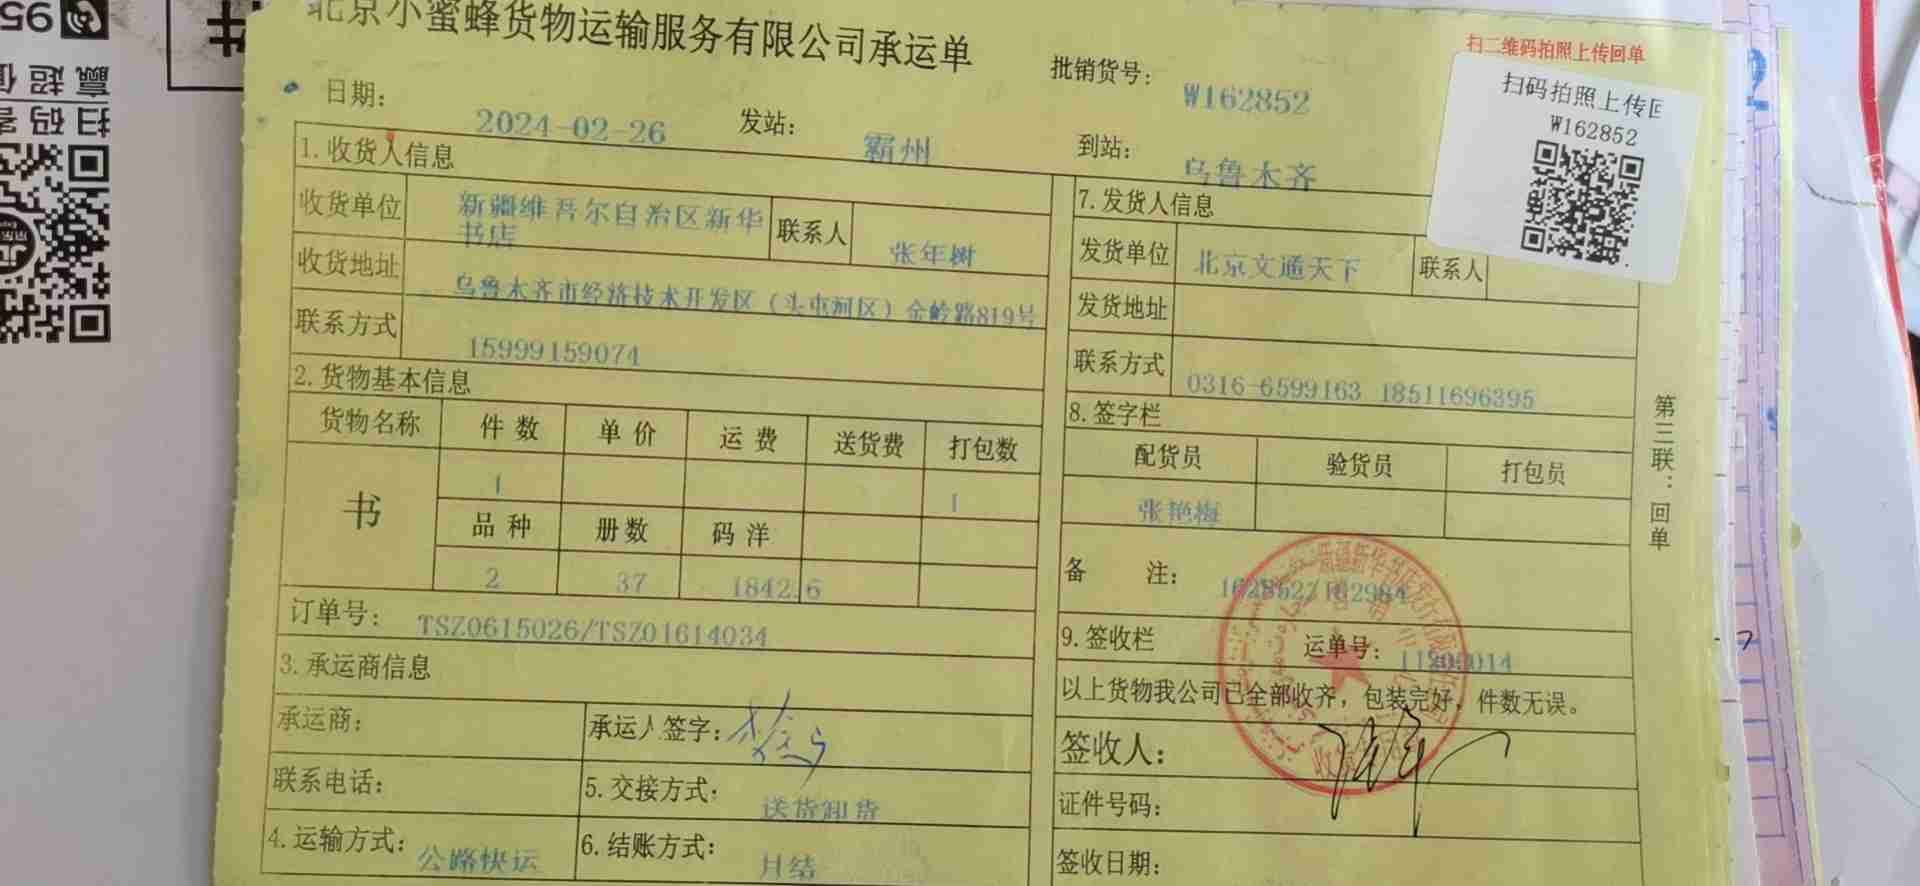 北京小蜜蜂货物运输服务有限公司承运单
扫二维码拍照上传回单
批销货号： W162852
扫码拍照上传回
W162852
日期： 2024-02-26 发站： 霸州 到站： 乌鲁木齐
1.收货人信息
收货单位 新疆维吾尔自治区新华书店 联系人 张年树
收货地址 乌鲁木齐市经济技术开发区（头屯河区）金岭路819号
联系方式 15999159074
2.货物基本信息
货物名称 件数 单价 运费 送货费 打包数
书 1 1
品种 册数 码洋
2 37 1842.6
订单号： TSZ0615026/TSZ01614034
3.承运商信息
承运商： 承运人签字：
联系电话： 5.交接方式： 送货卸货
4.运输方式： 公路快运 6.结账方式： 月结
7.发货人信息
发货单位 北京文通天下 联系人
发货地址
联系方式 0316-6599163 18511696395
8.签字栏
配货员 验货员 打包员
张艳梅
备注： 162852/162984
9.签收栏 运单号： 11200014
以上货物我公司已全部收齐，包装完好，件数无误。
签收人：
证件号码：
签收日期：
第三联：回单